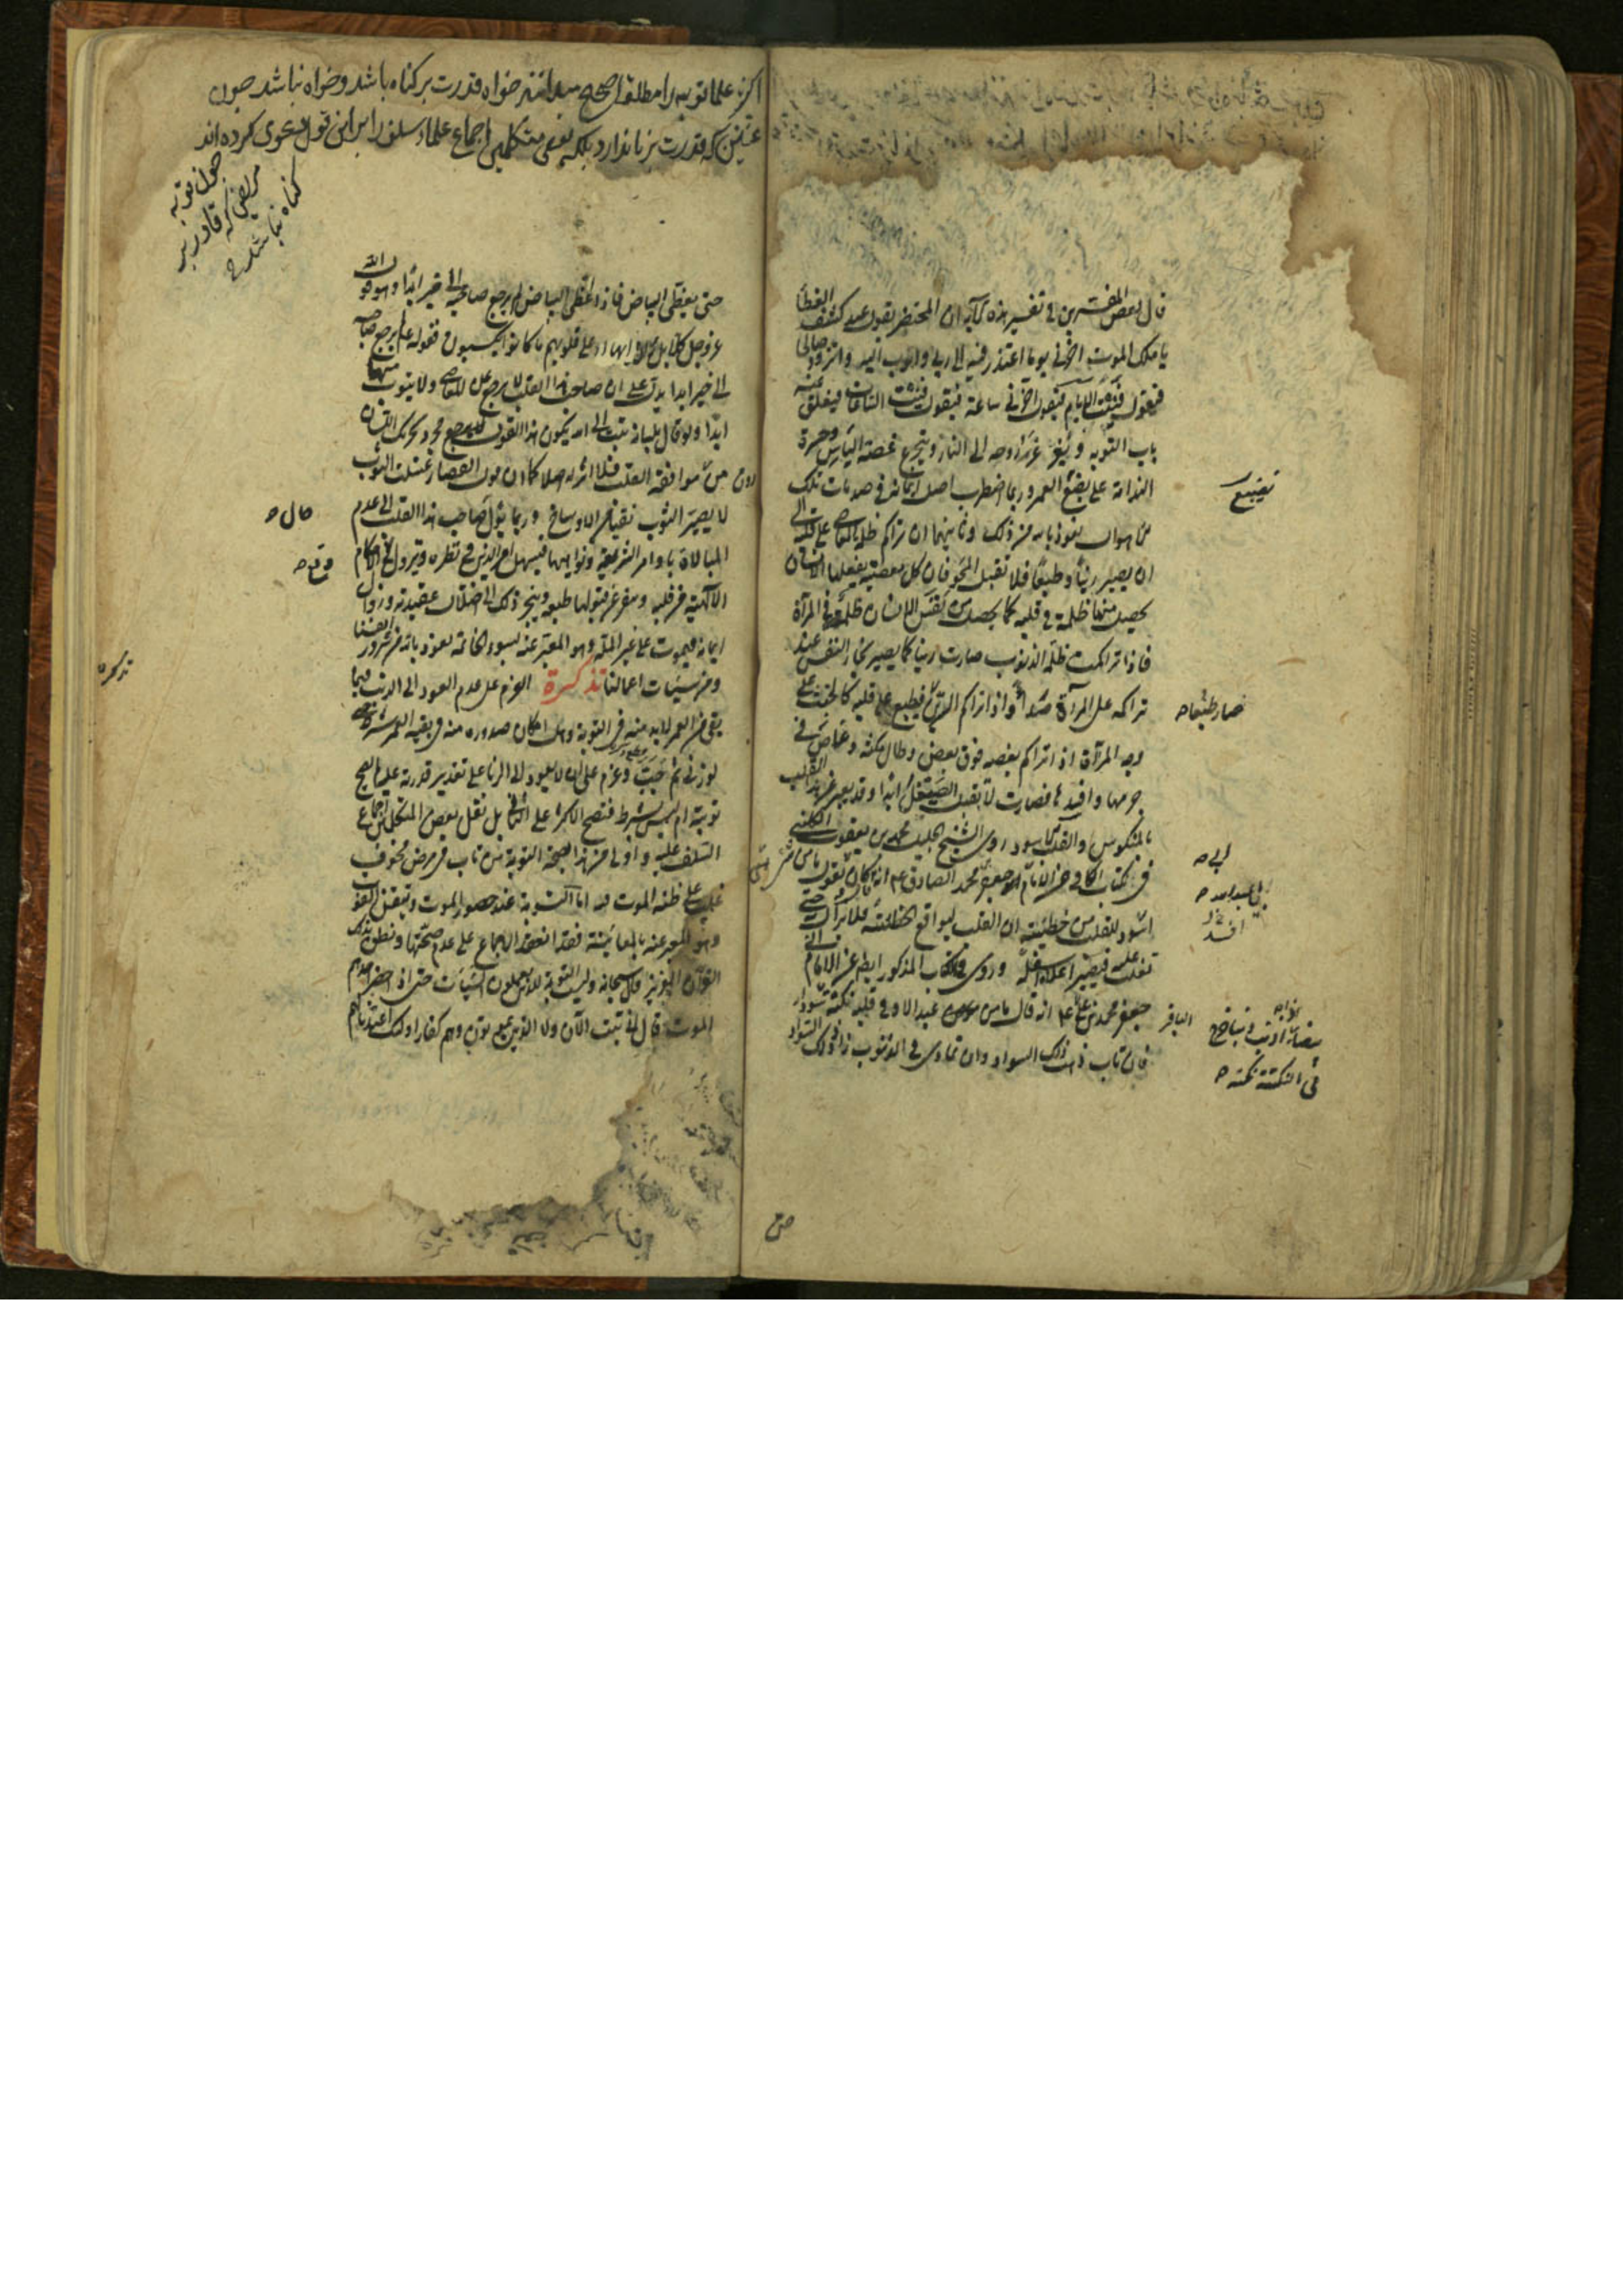 قال بعض المفسرين في تفسير هذه الآية ان المحتضر يقول عند كشف الغطأ
يا ملك الموت اخرني يوما اعتذر فيه الى ربي واتوب اليه واتزود صالحا
فيقول فنيت الايام فيقول اخرني ساعة فيقول فنيت الساعات فيغلق عنه
باب التوبة ويغرغر بروحه الى النار ويتجرع غصة اليأس وحسرة
الندامة على تضييع العمر وربما اضطرب اصل ايمانه في صدمات تلك
تضييع
الاهوال نعوذ بالله من ذلك وثانيهما ان تراكم ظلمة المعاصي على قلبه الى
ان يصير رينا وطبعا فلا تقبل المحو فان كل معصية يفعلها الانسان
يحصل منها ظلمة في قلبه كما يحصل من نفس الانسان ظلمة في المرآة
فاذا تراكمت ظلمة الذنوب صارت رينا كما يصير بخار النفس عند
تراكمه على المرآة صدأ واذا تراكم الرين فيطبع على قلبه كالخبث على
صار طبعا
وجه المرآة اذا تراكم بعضه فوق بعض وطال مكثه وغاص في
جرمها وافسدها فصارت لا تقبل الصيقل ابدا وقد يعبر عن هذا القلب
بالمنكوس والقلب الاسود روى الشيخ الجليل محمد بن يعقوب الكليني
في كتاب الكافي عن الامام جعفر بن محمد الصادق ع انه كان يقول ما من شئ
ابي
ابي عبد الله
افسد
للقلب من خطيئته ان القلب ليواقع الخطيئة فلا تزال به حتى
تغلب عليه فيصير اعلاه اسفله وروى في الكتاب المذكور ايضا عن الامام
جعفر محمد بن علي ع انه قال ما من عبد الا وفي قلبه نكتة سوداء
الباقر
فان تاب ذهب ذلك السواد وان تمادى في الذنوب زاد ذلك السواد
في النكتة نكتة
حتى
اكثر علما توبه را مطلقا صحيح ميدانند خواه قدرت بر كناه باشد وخواه نباشد چون
عنين كه قدرت بر زنا ندارد بلكه بعضى متكلمين اجماع علماء سلف را بر اين قول دعوى كرده اند
چون توبه
مريض كه قادر بر
كناه نباشد
حتى يغطى البياض فاذا غطى البياض لم يرجع صاحبه الى خير ابدا وهو قول الله
عز وجل كلا بل ران على قلوبهم ما كانوا يكسبون فقوله ع لم يرجع صاحبه
الى خير ابدا يدل على ان صاحب هذا القلب لا يرجع عن المعاصي ولا يتوب منها
ابدا ولو قال بلسانه تبت الى الله يكون هذا القول منه مجرد تحريك اللسان
دون من موافقة القلب فلا اثر له اصلا كما ان قول القصار غسلت الثوب
لا يصير الثوب نقيا من الاوساخ وربما يؤل صاحب هذا القلب الى عدم
حال
المبالاة باوامر الشريعة ونواهيها فيسهل امر الدين في نظره ويزول وقع الاحكام
وقع
الالهية من قلبه وينفر عن قبولها طبعه وينجر ذلك الى اختلال عقيدته وزوال
ايمانه فيموت على غير الملة وهو المعبر عنه بسوء الخاتمة نعوذ بالله من شرور انفسنا
ومن سيئات اعمالنا تذكرة العزم على عدم العود الى الذنب فيما
تذكره
بقي من العمر لابد منه في التوبة وهل امكان صدوره منه في بقية العمر شرط حتى
لو زنى ثم جب وعزم على ان لا يعود الى الزنا على تقدير قدرته عليه لم تصح
توبته ام ليس بشرط فتصح الاكثر على الثاني بل نقل بعض المتكلمين اجماع
السلف عليه واولى من هذا بصحة التوبة من تاب في مرض مخوف
غلب على ظنه الموت فيه اما التوبة عند حضور الموت وتيقن الفوت
وهو المعبر عنه بالمعاينة فقد انعقد الاجماع على عدم صحتها ونطق بذلك
القرآن العزيز قال سبحانه وليست التوبة للذين يعملون السيئات حتى اذا حضر احدهم
الموت قال اني تبت الآن ولا الذين يموتون وهم كفار اولئك اعتدنا لهم